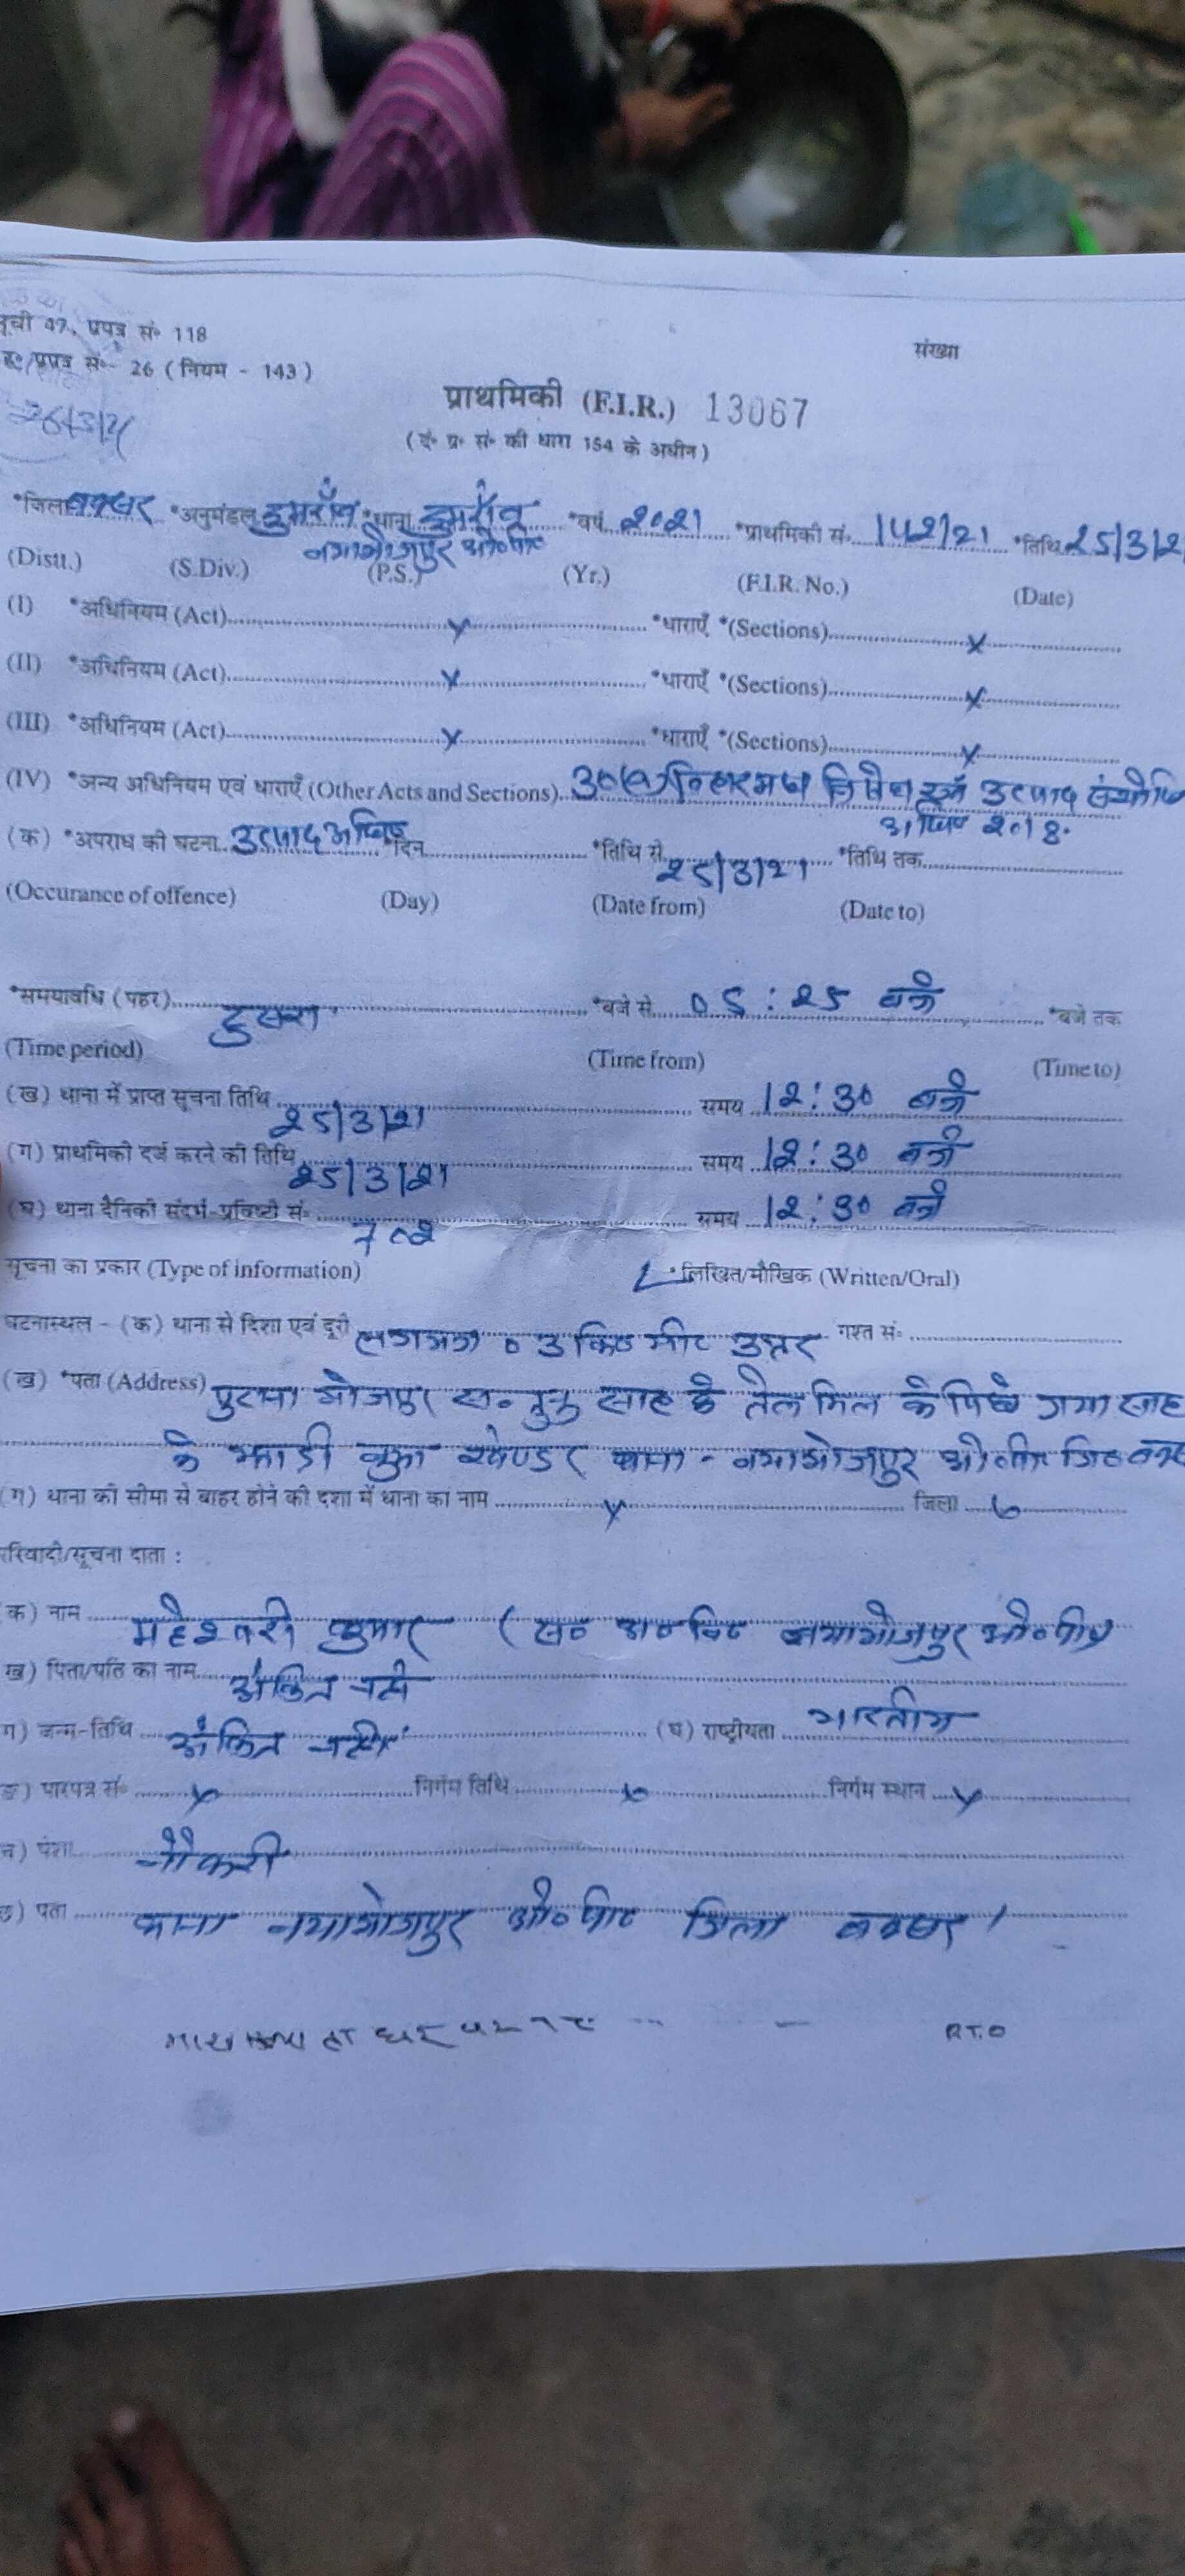 सूची 47, प्रपत्र सं॰ 118
संख्या
प्रपत्र सं॰- 26 ( नियम - 143 )
प्राथमिकी (F.I.R.) 13067
(दं॰ प्र॰ सं॰ की धारा 154 के अधीन)
*जिला बक्सर *अनुमंडल डुमराँव *थाना डुमराँव *वर्ष 2021 *प्राथमिकी सं. 142/21 *तिथि 25/3/2
नयाभोजपुर ओ०पी०
(Distt.) (S.Div.) (P.S.) (Yr.) (F.I.R. No.) (Date)
(I) *अधिनियम (Act) x *धाराएँ *(Sections) x
(II) *अधिनियम (Act) x *धाराएँ *(Sections) x
(III) *अधिनियम (Act) x *धाराएँ *(Sections) x
(IV) *अन्य अधिनियम एवं धाराएँ (Other Acts and Sections) 30(a) बिहार मद्य निषेध एवं उत्पाद
अधि० 2018.
(क) *अपराध की घटना उत्पाद अधि० *दिन *तिथि से 25/3/21 *तिथि तक
(Occurance of offence) (Day) (Date from) (Date to)
*समयावधि (पहर) दुसरा *बजे से 05:25 बजे *बजे तक
(Time period) (Time from) (Time to)
(ख) थाना में प्राप्त सूचना तिथि 25/3/21 समय 12:30 बजे
(ग) प्राथमिकी दर्ज करने की तिथि 25/3/21 समय 12:30 बजे
(घ) थाना दैनिकी संदर्भ-प्रविष्टी सं॰ 702 समय 12:30 बजे
सूचना का प्रकार (Type of information) *लिखित/मौखिक (Written/Oral)
घटनास्थल - (क) थाना से दिशा एवं दूरी लगभग 03 कि० मी० उत्तर गश्त सं॰
(ख) *पता (Address) पुराना भोजपुर साह के तेल मिल के पिछे गया साह
के झाड़ी नुमा खण्डर थाना - नयाभोजपुर ओ०पी० जि०
(ग) थाना की सीमा से बाहर होने की दशा में थाना का नाम x जिला
रिवादी/सूचना दाता :
क) नाम महेश्वरी कुमार (स० अ० नि० नयाभोजपुर ओ०पी०)
ख) पिता/पति का नाम अंकित नहीं
ग) जन्म-तिथि अंकित नहीं (घ) राष्ट्रीयता भारतीय
ङ) पारपत्र सं॰ x निर्गम तिथि x निर्गम स्थान x
च) पेशा नौकरी
छ) पता थाना नयाभोजपुर ओ०पी० जिला बक्सर ।